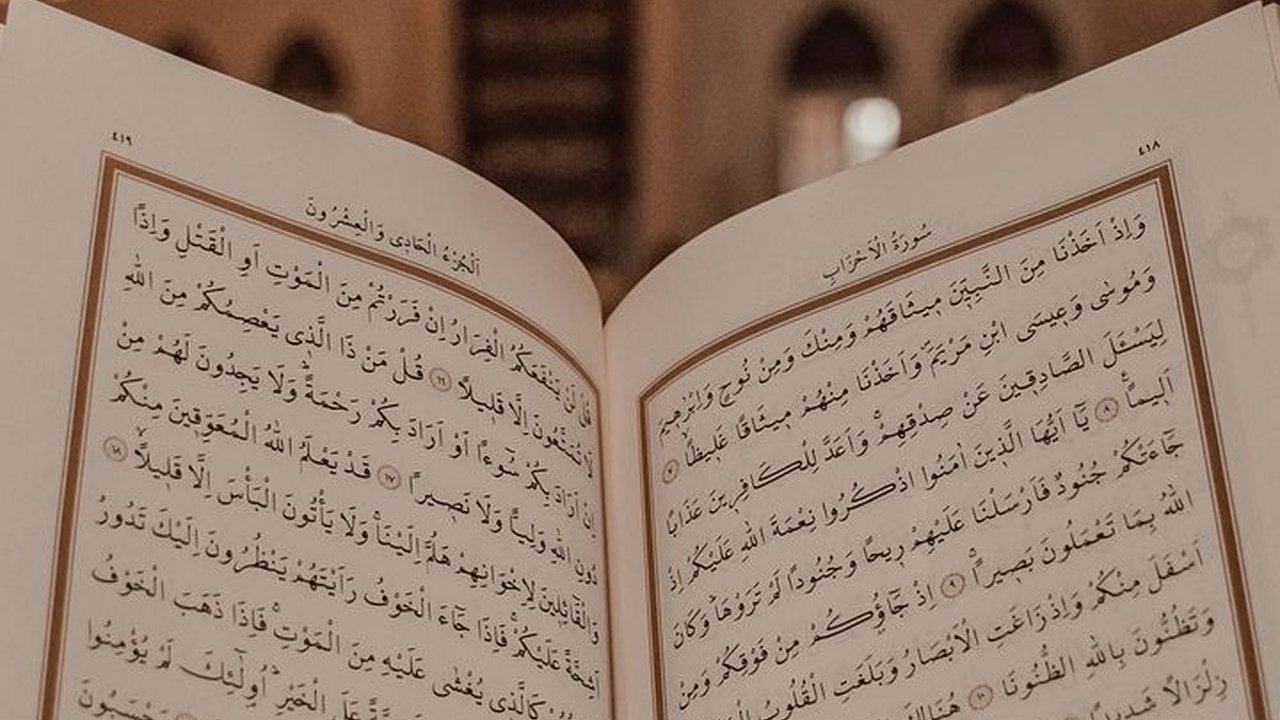 ٤١٨
سُورَةُ الْاَحْزَابِ
وَاِذْ اَخَذْنَا مِنَ النَّبِيّ۪نَ م۪يثَاقَهُمْ وَمِنْكَ وَمِنْ نُوحٍ وَاِبْرٰه۪يمَ
وَمُوسٰى وَع۪يسَى ابْنِ مَرْيَمَۖ وَاَخَذْنَا مِنْهُمْ م۪يثَاقًا غَل۪يظًاۙ ٧
لِيَسْـَٔلَ الصَّادِق۪ينَ عَنْ صِدْقِهِمْۚ وَاَعَدَّ لِلْكَافِر۪ينَ عَذَابًا
اَل۪يمًا۟ ٨ يَٓا اَيُّهَا الَّذ۪ينَ اٰمَنُوا اذْكُرُوا نِعْمَةَ اللّٰهِ عَلَيْكُمْ اِذْ
جَٓاءَتْكُمْ جُنُودٌ فَاَرْسَلْنَا عَلَيْهِمْ ر۪يحًا وَجُنُودًا لَمْ تَرَوْهَاۜ وَكَانَ
اللّٰهُ بِمَا تَعْمَلُونَ بَص۪يرًاۚ ٩ اِذْ جَٓاؤُ۫كُمْ مِنْ فَوْقِكُمْ وَمِنْ
اَسْفَلَ مِنْكُمْ وَاِذْ زَاغَتِ الْاَبْصَارُ وَبَلَغَتِ الْقُلُوبُ
وَتَظُنُّونَ بِاللّٰهِ الظُّنُونَا ١٠ هُنَالِكَ
زِلْزَالًا شَد۪يدًا
٤١٩
اَلْجُزْءُ الْحَاد۪ى وَالْعِشْرُونَ
قُلْ لَنْ يَنْفَعَكُمُ الْفِرَارُ اِنْ فَرَرْتُمْ مِنَ الْمَوْتِ اَوِ الْقَتْلِ وَاِذًا
لَا تُمَتَّعُونَ اِلَّا قَل۪يلًا ١٦ قُلْ مَنْ ذَا الَّذ۪ى يَعْصِمُكُمْ مِنَ اللّٰهِ
اِنْ اَرَادَ بِكُمْ سُٓوءًا اَوْ اَرَادَ بِكُمْ رَحْمَةًۜ وَلَا يَجِدُونَ لَهُمْ مِنْ
دُونِ اللّٰهِ وَلِيًّا وَلَا نَص۪يرًا ١٧ قَدْ يَعْلَمُ اللّٰهُ الْمُعَوِّق۪ينَ مِنْكُمْ
وَالْقَٓائِل۪ينَ لِاِخْوَانِهِمْ هَلُمَّ اِلَيْنَاۚ وَلَا يَأْتُونَ الْبَأْسَ اِلَّا قَل۪يلًاۙ ١٨
اَشِحَّةً عَلَيْكُمْۚ فَاِذَا جَٓاءَ الْخَوْفُ رَاَيْتَهُمْ يَنْظُرُونَ اِلَيْكَ تَدُورُ
كَالَّذ۪ى يُغْشٰى عَلَيْهِ مِنَ الْمَوْتِۚ فَاِذَا ذَهَبَ الْخَوْفُ
عَلَى الْخَيْرِۜ اُو۬لٰٓئِكَ لَمْ يُؤْمِنُوا
يَحْسَبُونَ